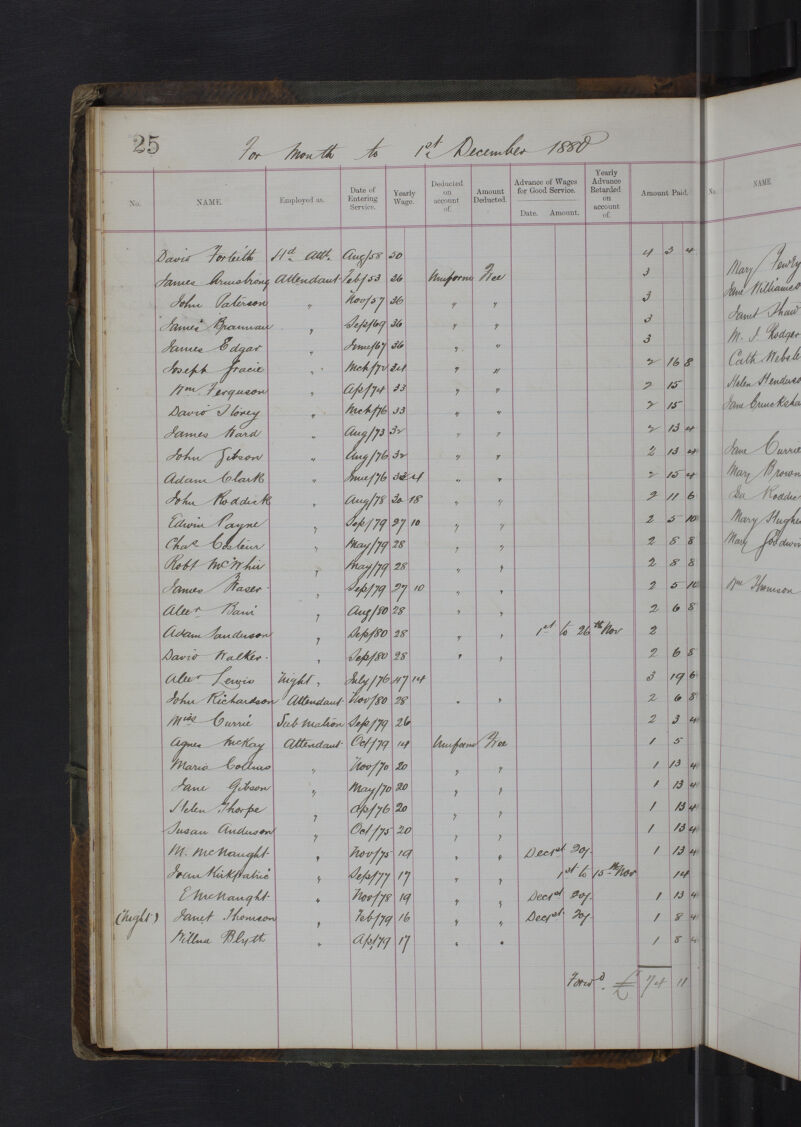 25
For Month to 1st December 1880
No. NAME. Employed as. Date of Entering Service. Yearly Wage. Deducted on account of. Amount Deducted. Advance of Wages for Good Service. Date. Amount. Yearly Advance Retarded on account of Amount Paid. No. NAME
David Forteith Hd. Att. Aug/58 50 4 3 4
James Armstrong Attendant Feb/53 36 Uniform Free 3
John Paterson " Nov/57 36 " " 3
James Brannan " Sep/69 36 " " 3
James Edgar " June/67 36 " " 3
Joseph Gracie " Mch/72 34 " " 2 16 8
Wm Ferguson " Ap/74 33 " " 2 15
David Storey " Mch/76 33 " " 2 15
James Ward " Aug/73 32 " " 2 13 4
John Gibson " Aug/76 32 " " 2 13 4
Adam Clark " June/76 33 4 " " 2 15 4
John Roddick " Aug/78 30 18 " " 2 11 6
Edwin Payne " Sep/79 27 10 " " 2 5 10
Chas " May/79 28 " " 2 8 8
Robt McWhir " May/79 28 " " 2 8 8
James Fraser " Sep/79 27 10 " " 2 5 10
Alexr " Aug/80 28 " " 2 6 8
Adam Sanderson " Sep/80 28 " " 1st to 26th Nov 2
David Walker " Sep/80 28 " " 2 6 8
Alexr Lewis Night " July/76 47 14 3 19 6
John Richardson Attendant Nov/80 28 " " 2 6 8
Miss Currie Sub Matron Sep/79 26 2 3 4
Agnes McKay Attendant Oct/79 14 Uniform Free 1 5
Maria Collins " Nov/70 20 " " 1 13 4
Jane Gibson " May/70 20 " " 1 13 4
Helen Thorpe " Ap/76 20 " " 1 13 4
Susan Anderson " Oct/75 20 " " 1 13 4
M. McNaught " Nov/75 19 " " Decr 1st 20/. 1 13 4
Kirkpatric " Sep/77 17 " " 1st to 15th Nov 14
E McNaught " Nov/78 19 " " Decr 1st 20/. 1 13 4
(Night) Janet Thomson " Feb/79 16 " " Decr 1st 20/ 1 8 4
Willna Blyth " Ap/79 17 " " 1 8 4
Forwd. £ 74 11
Mary
Jane Williams
Janet Shaw
M. J. Rodger
Cath Webste
Helen Henders
Jane Cruicksha
Jane Currie
Mary Brown
Roddic
Mary Hughe
Mary Goodwin
Wm Thomson